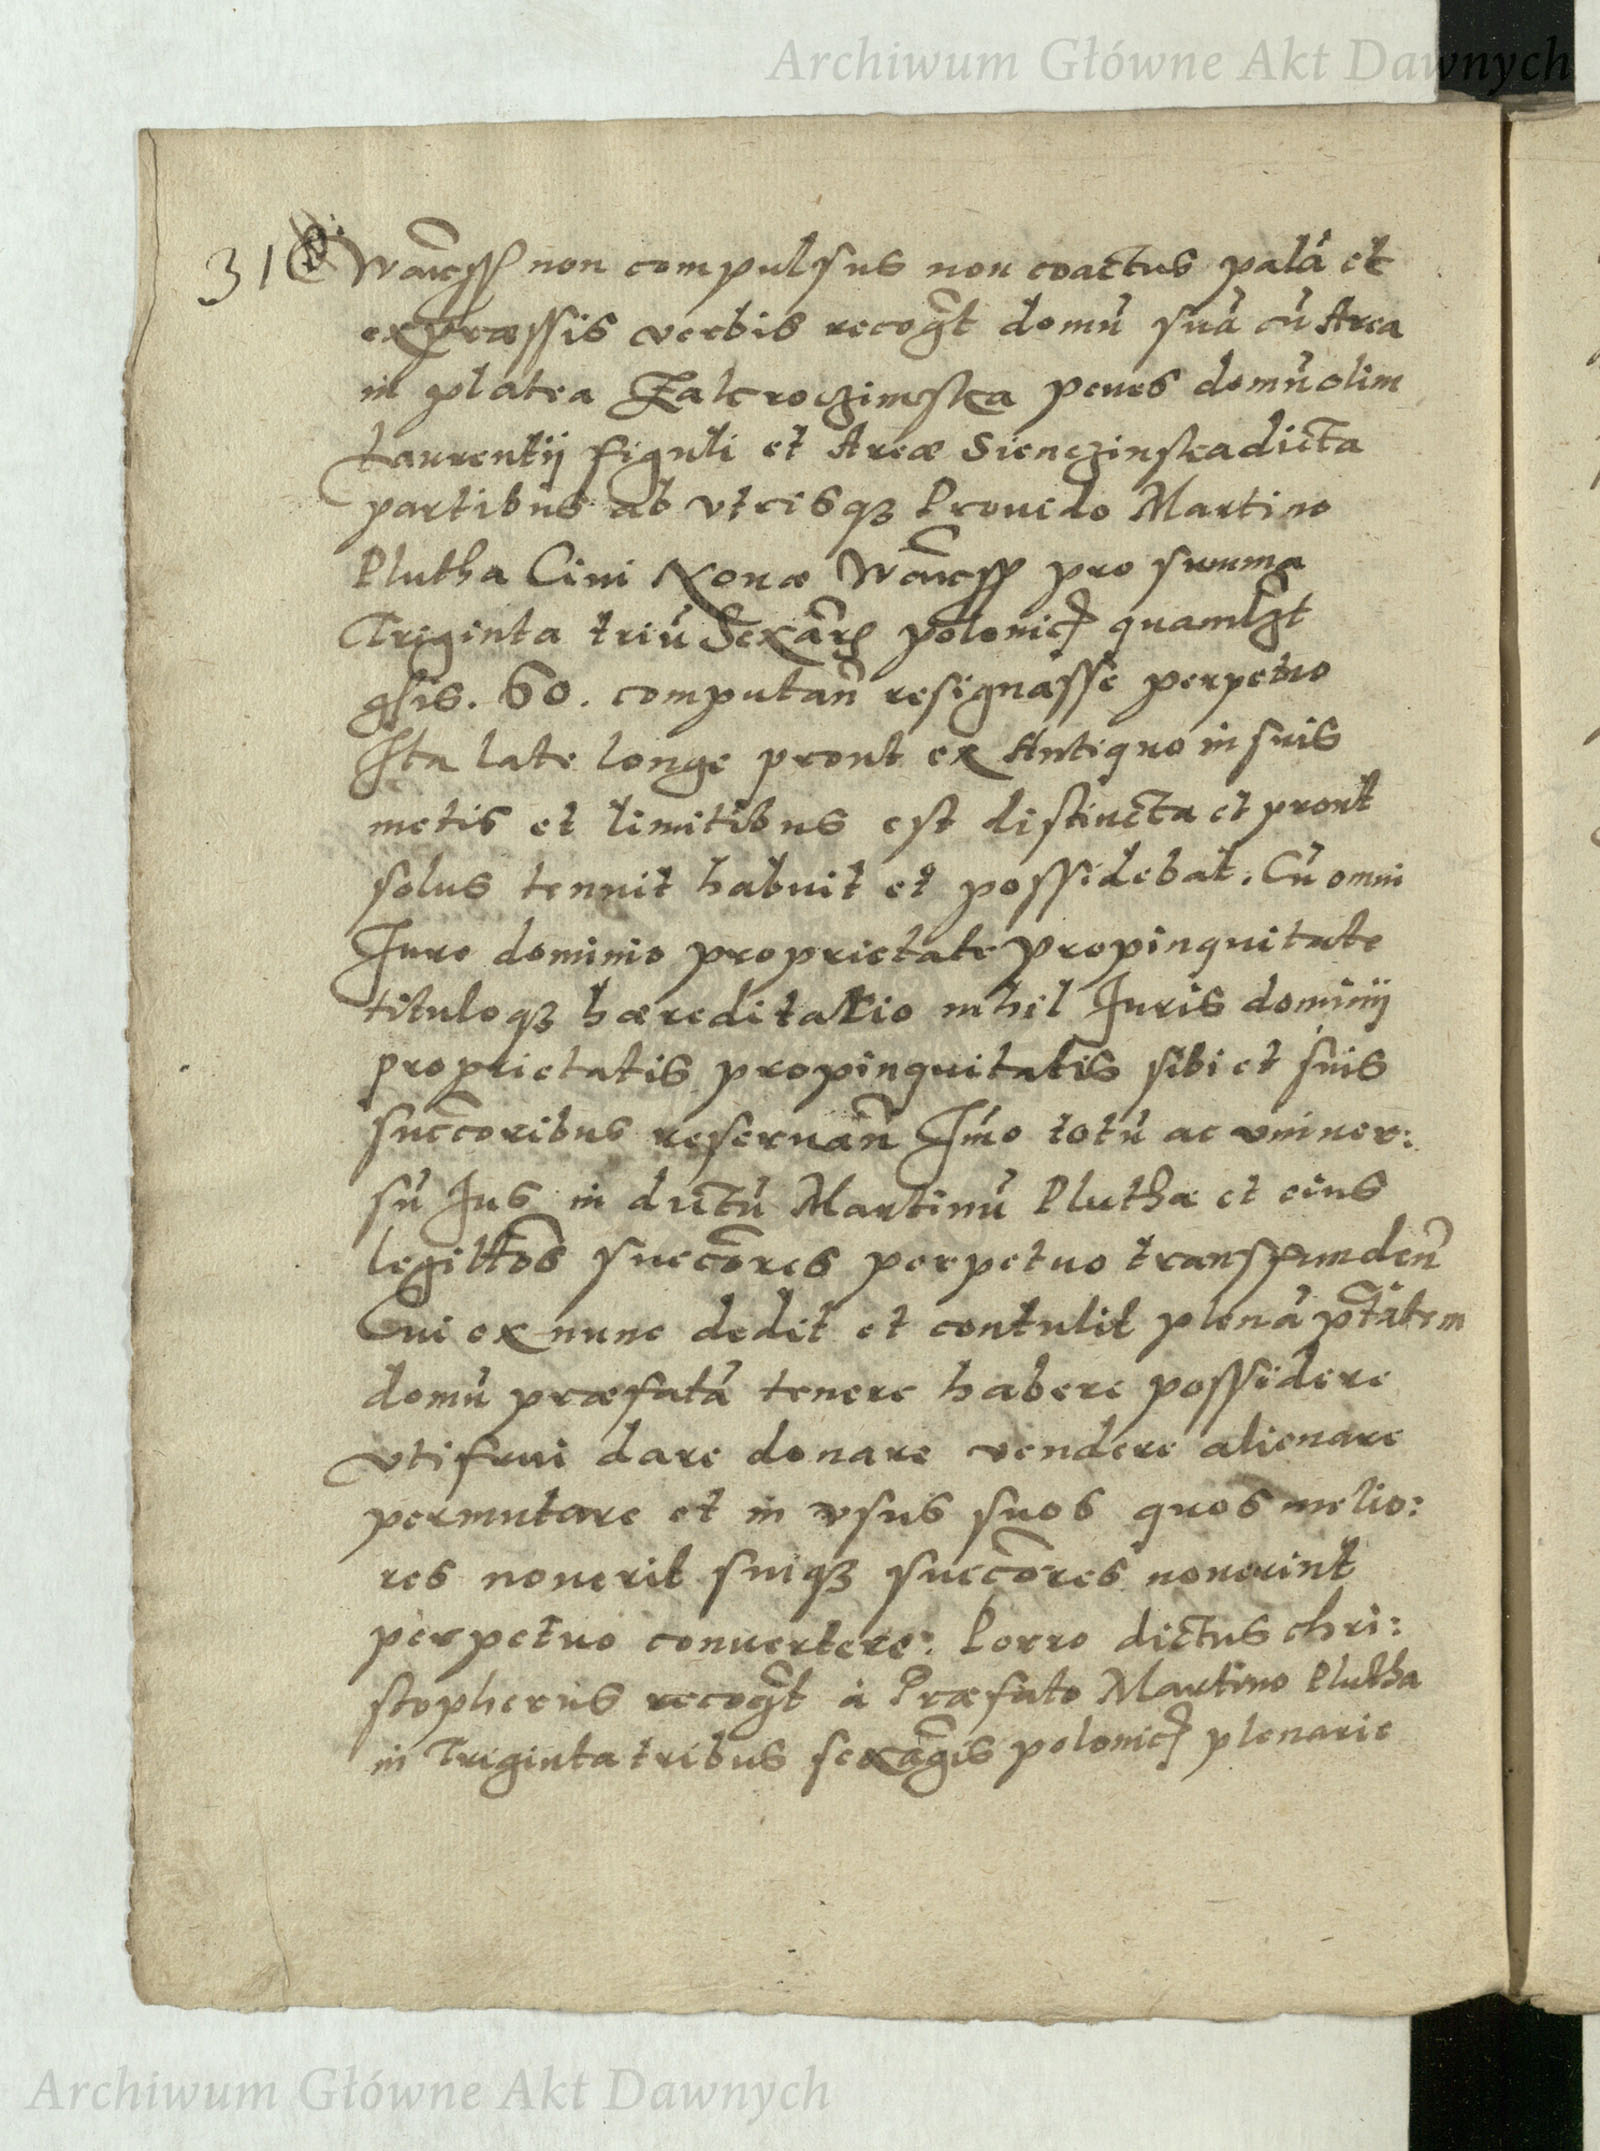 Archiwum Główne Akt Dawnych
31
non compulsus non coactus palā et
expræssis verbis recog̃t domū suā cū Area
in platea Zakroczimska penes domū olim
Laurentij figuli et Areæ Sienczinska dicta
partibus ab vtrisqꝫ Prouido Martino
Plutha Ciui Nouæ Warsz̃ pro summa
Triginta triū Sexag̃ polonic̃ quamlꝫt
gſis. 60. computañ resignasse perpetuo
Ita late longe prout ex Antiquo in suis
metis et limitibus est distincta et prout
solus tenuit habuit et possidebat. Cū omni
Iure dominio proprietate propinquitate
tituloqꝫ hæreditario nihil Iuris dominij
proprietatis propinquitatis sibi et suis
succ̃oribus reseruañ Im̄o totū ac vniuer:
sū Ius in dictū Martinū Plutha et eius
legitt̃os succ̃ores perpetuo transfundeñ
Cui ex nunc dedit et contulit plenā pt̃ātem
domū præfatā tenere habere possidere
vtifrui dare donare vendere alienare
permutare et in vsus suos quos melio:
res nouerit suiqꝫ succ̃ores nouerint
perpetuo conuertere: Porro dictus Chri:
stopherus recog̃t à Præfato Martino Plutha
in Triginta tribus sexag̃is polonic̃ plenarie
Archiwum Główne Akt Dawnych